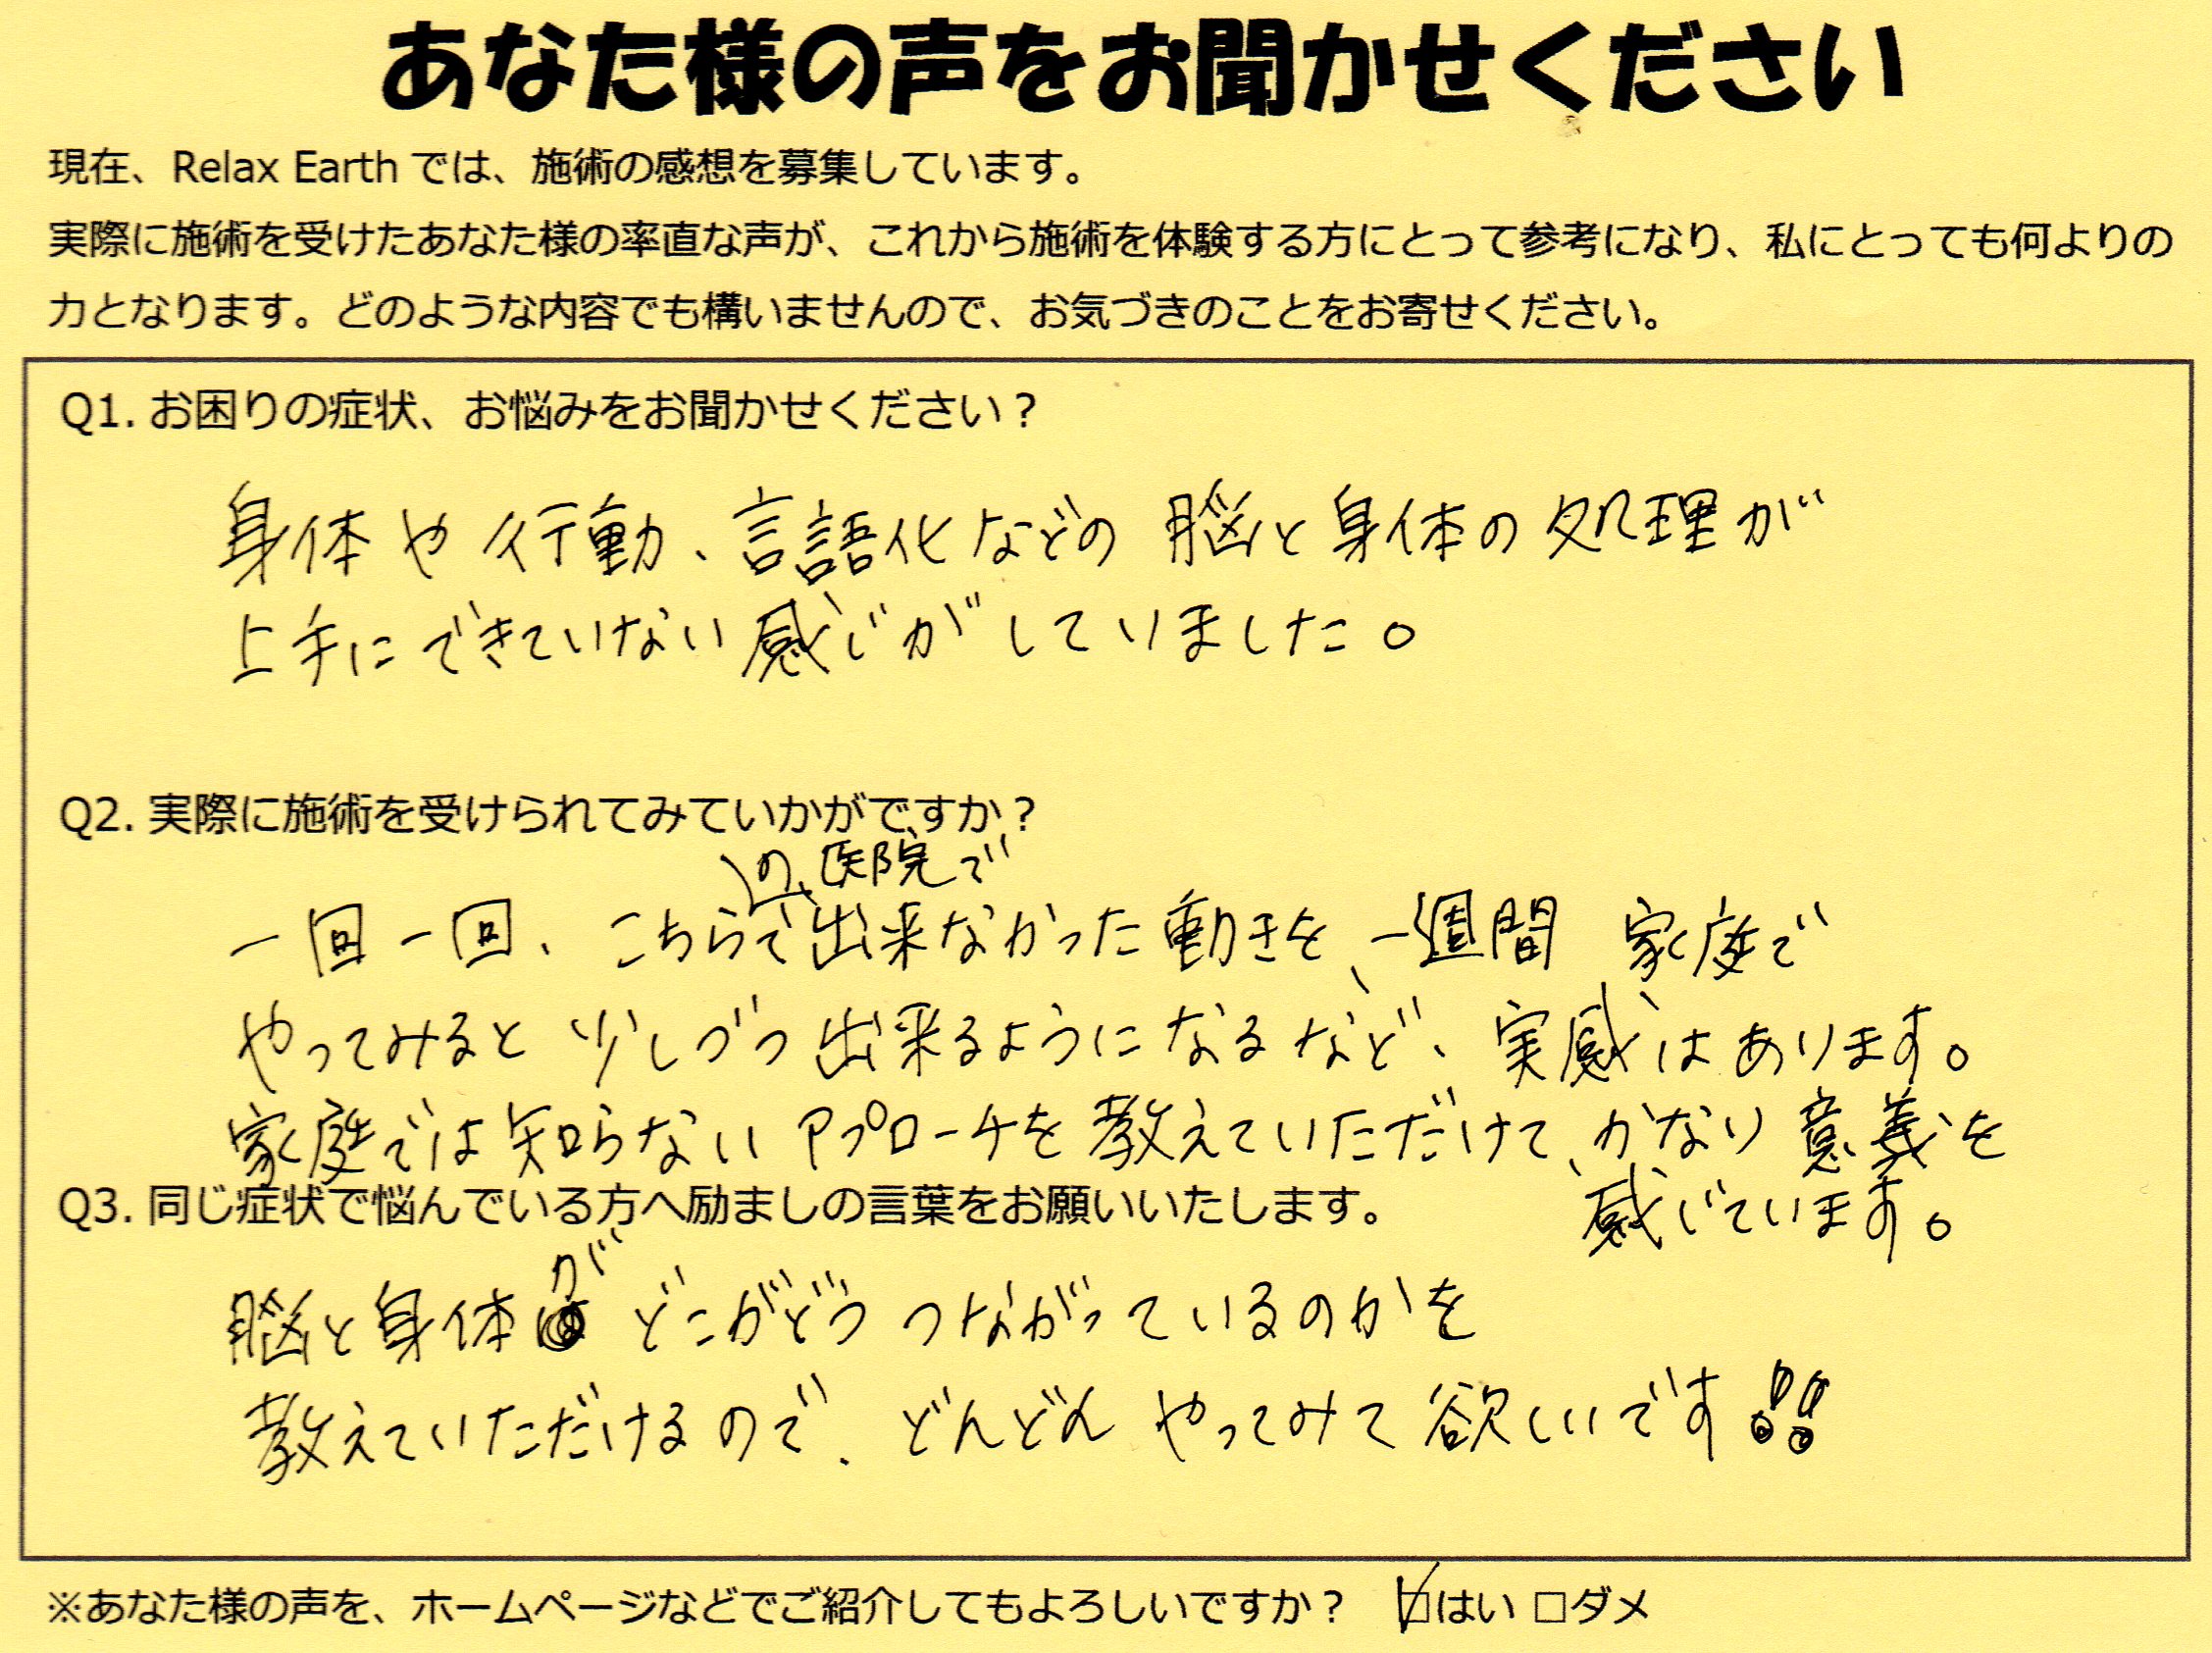 あなた様の声をお聞かせください
現在、Relax Earth では、施術の感想を募集しています。
実際に施術を受けたあなた様の率直な声が、これから施術を体験する方にとって参考になり、私にとっても何よりの
力となります。どのような内容でも構いませんので、お気づきのことをお寄せください。
Q1. お困りの症状、お悩みをお聞かせください？
身体や行動、言語化などの脳と身体の処理が
上手にできていない感じがしていました。
Q2. 実際に施術を受けられてみていかがですか？
の医院で
一回一回、こちらで出来なかった動きを、一週間 家庭で
やってみると少しづつ出来るようになるなど、実感はあります。
家庭では知らないアプローチを教えていただけて、かなり意義を
感じています。
Q3. 同じ症状で悩んでいる方へ励ましの言葉をお願いいたします。
脳と身体がどこがどうつながっているのかを
教えていただけるので、どんどんやってみて欲しいです!!
※あなた様の声を、ホームページなどでご紹介してもよろしいですか？ ☑はい □ダメ